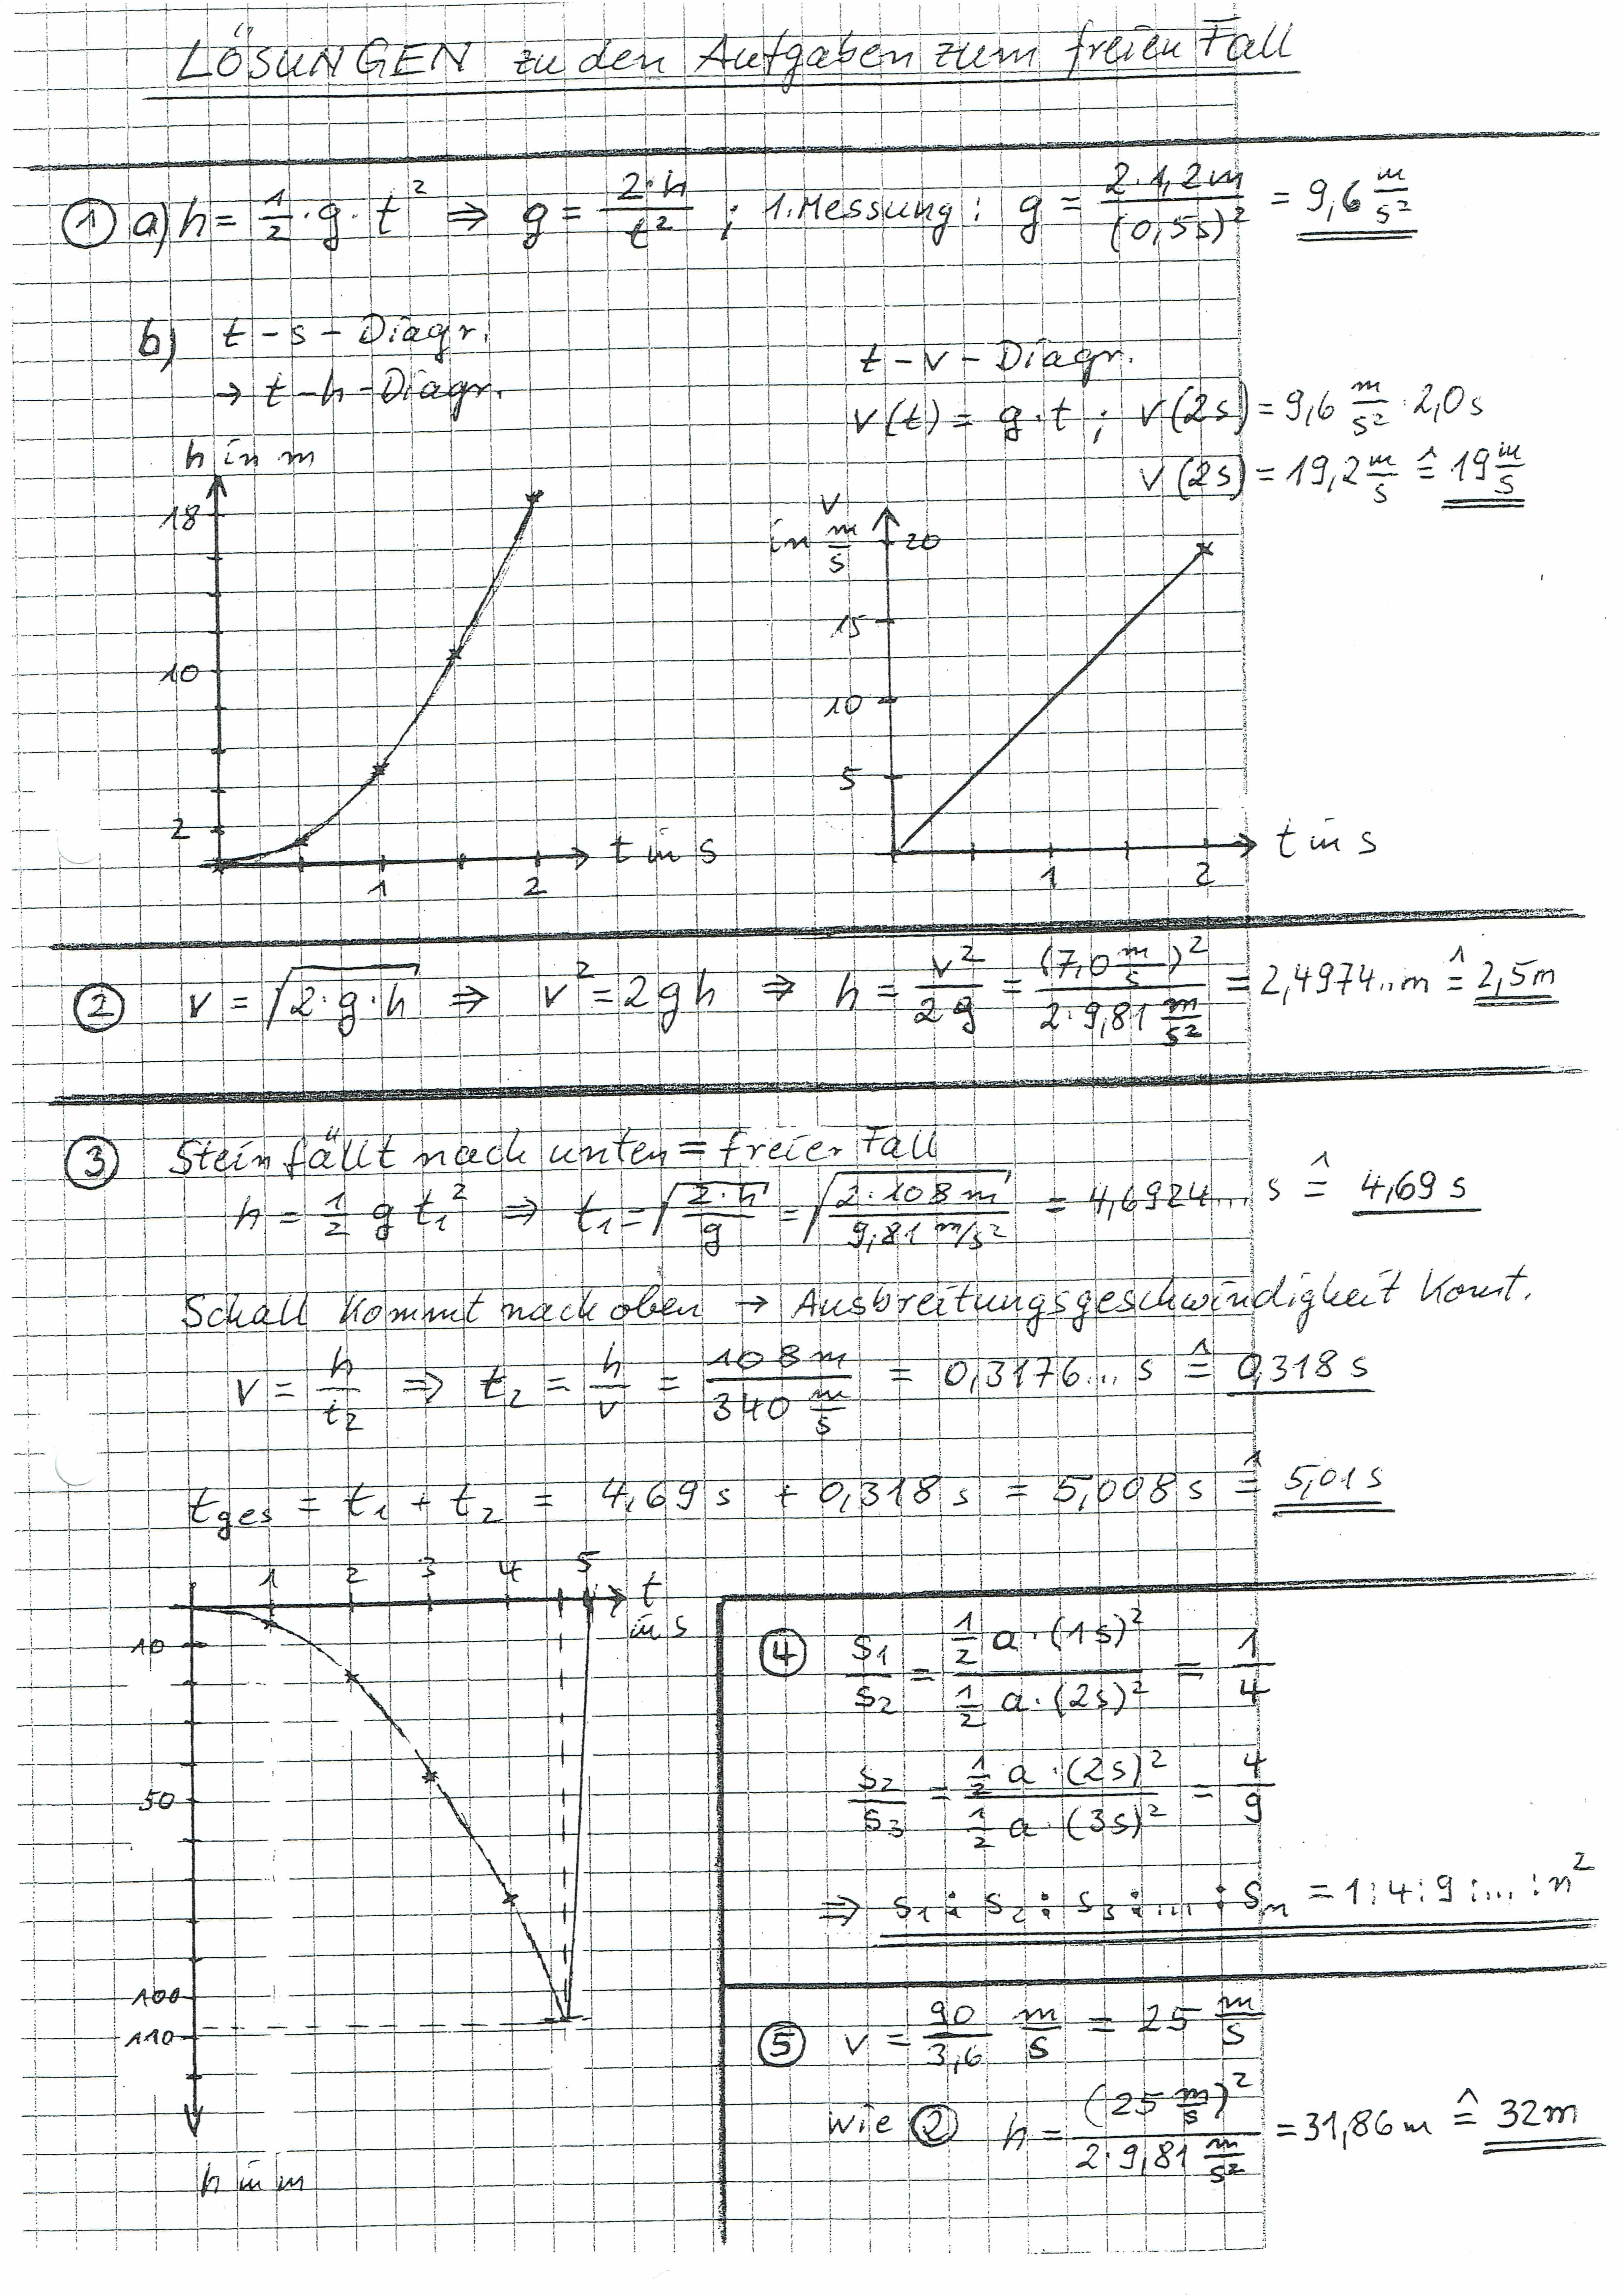 LÖSUNGEN zu den Aufgaben zum freien Fall
① a) h = 1/2 · g · t² ⇒ g = 2·h / t² ; 1. Messung: g = 2·1,2m / (0,5s)² = 9,6 m/s²
b) t-s-Diagr.
→ t-h-Diagr.
h in m
18
10
2
1 2
t in s
t-v-Diagr.
v(t) = g·t ; v(2s) = 9,6 m/s² · 2,0s
v(2s) = 19,2 m/s ≙ 19 m/s
v in m/s
20
15
10
5
1 2
t in s
② v = √(2·g·h) ⇒ v² = 2gh ⇒ h = v²/2g = (7,0 m/s)² / 2·9,81 m/s² = 2,4974..m ≙ 2,5m
③ Stein fällt nach unten = freier Fall
h = 1/2 g t₁² ⇒ t₁ = √(2·h / g) = √(2·108m / 9,81 m/s²) = 4,6924... s ≙ 4,69 s
Schall kommt nach oben → Ausbreitungsgeschwindigkeit konst.
v = h/t₂ ⇒ t₂ = h/v = 108m / 340 m/s = 0,3176... s ≙ 0,318 s
tges = t₁ + t₂ = 4,69 s + 0,318 s = 5,008 s ≙ 5,01 s
1 2 3 4 5
t in s
10
50
100
110
h in m
④ s₁/s₂ = 1/2 a·(1s)² / 1/2 a·(2s)² = 1/4
s₂/s₃ = 1/2 a·(2s)² / 1/2 a·(3s)² = 4/9
⇒ s₁ : s₂ : s₃ : ... : sₙ = 1:4:9:...:n²
⑤ v = 90/3,6 m/s = 25 m/s
wie ② h = (25 m/s)² / 2·9,81 m/s² = 31,86m ≙ 32m